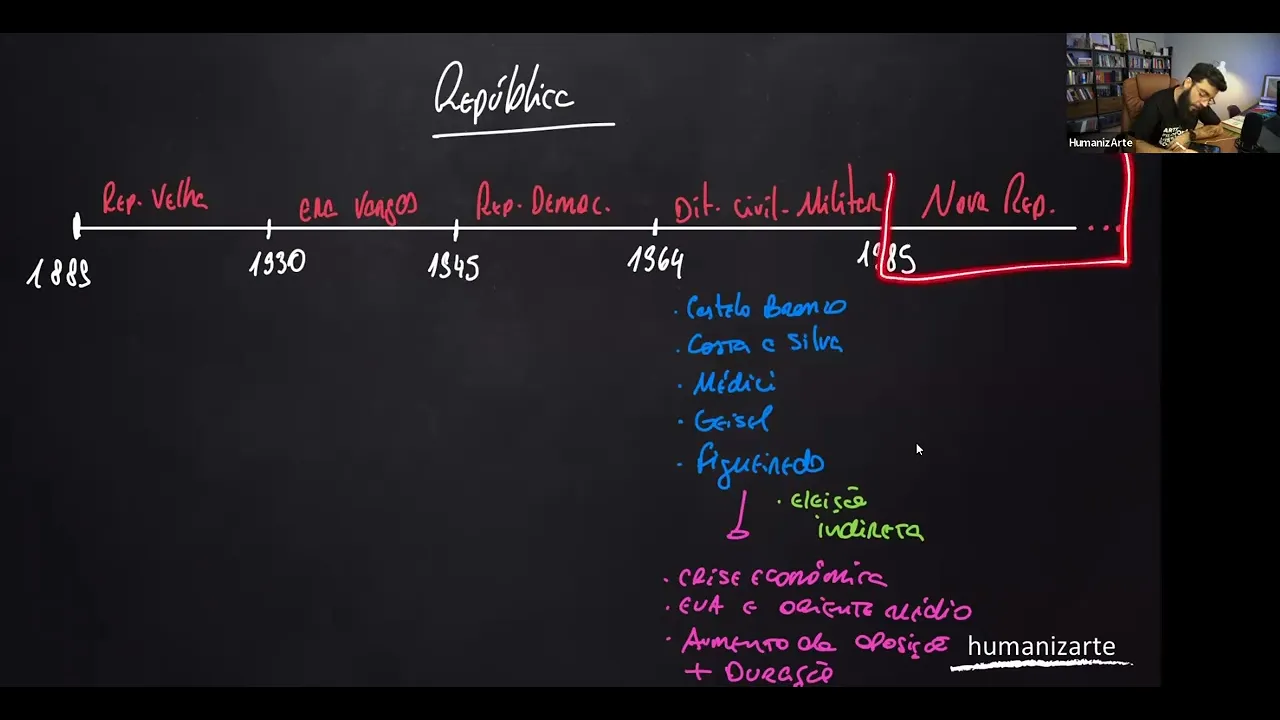 República
HumanizArte
Rep. Velha
era Vargas
Rep. Democ.
Dit. Civil-Militar
Nova Rep.
...
1889
1930
1945
1964
1985
· Castelo Branco
· Costa e Silva
· Médici
· Geisel
· Figueiredo
· Eleição
indireta
· Crise Econômica
· EUA e Oriente Médio
· Aumento da oposição
+ Duração
humanizarte